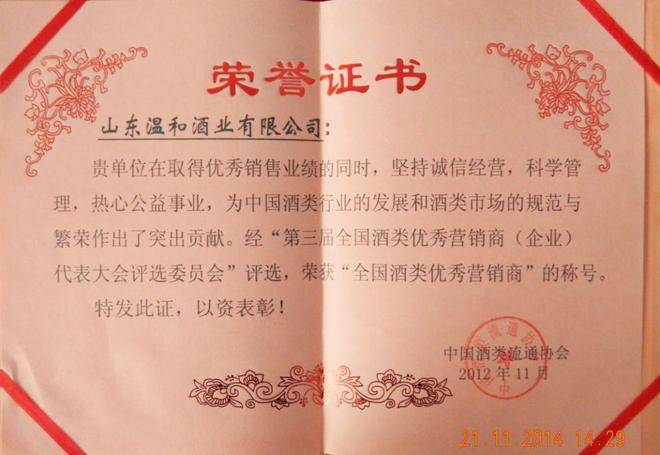 荣誉证书
山东温和酒业有限公司：
贵单位在取得优秀销售业绩的同时，坚持诚信经营，科学管
理，热心公益事业，为中国酒类行业的发展和酒类市场的规范与
繁荣作出了突出贡献。经“第三届全国酒类优秀营销商（企业）
代表大会评选委员会”评选，荣获“全国酒类优秀营销商”的称号。
特发此证，以资表彰！
中国酒类流通协会
2012年11月
21.11.2014 14:29